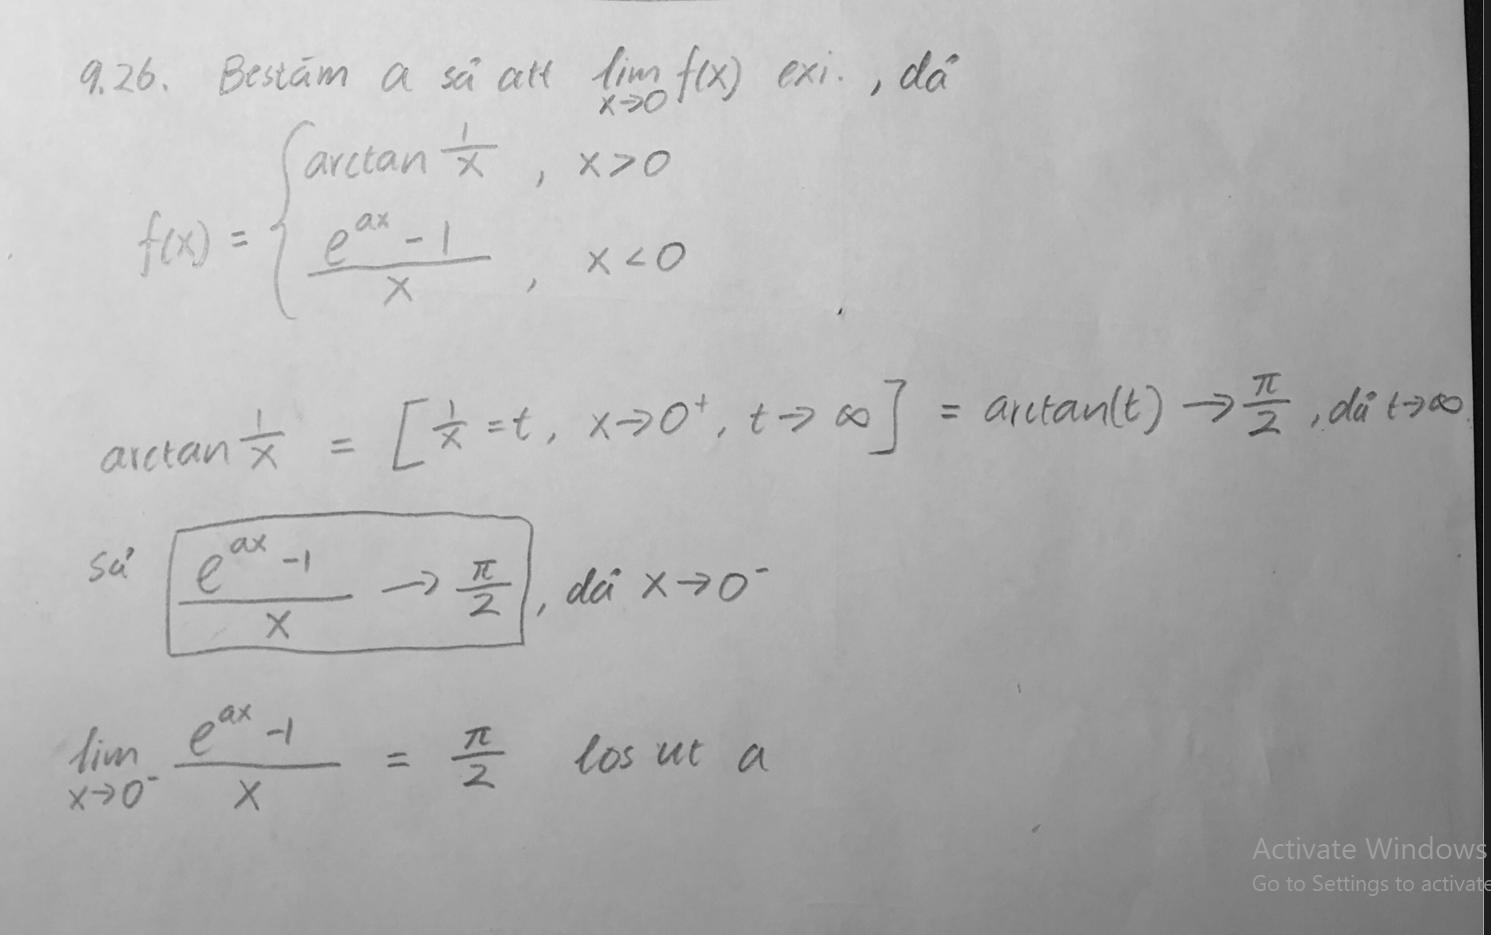 9.26. Bestäm a så att lim x→0 f(x) exi., då
f(x) = { arctan 1/x , x>0
(e^(ax) - 1)/x , x<0
arctan 1/x = [1/x = t, x→0⁺, t→∞] = arctan(t) → π/2, då t→∞
så (e^(ax) -1)/x → π/2, då x→0⁻
lim x→0⁻ (e^(ax) -1)/x = π/2 lös ut a
Activate Windows
Go to Settings to activate